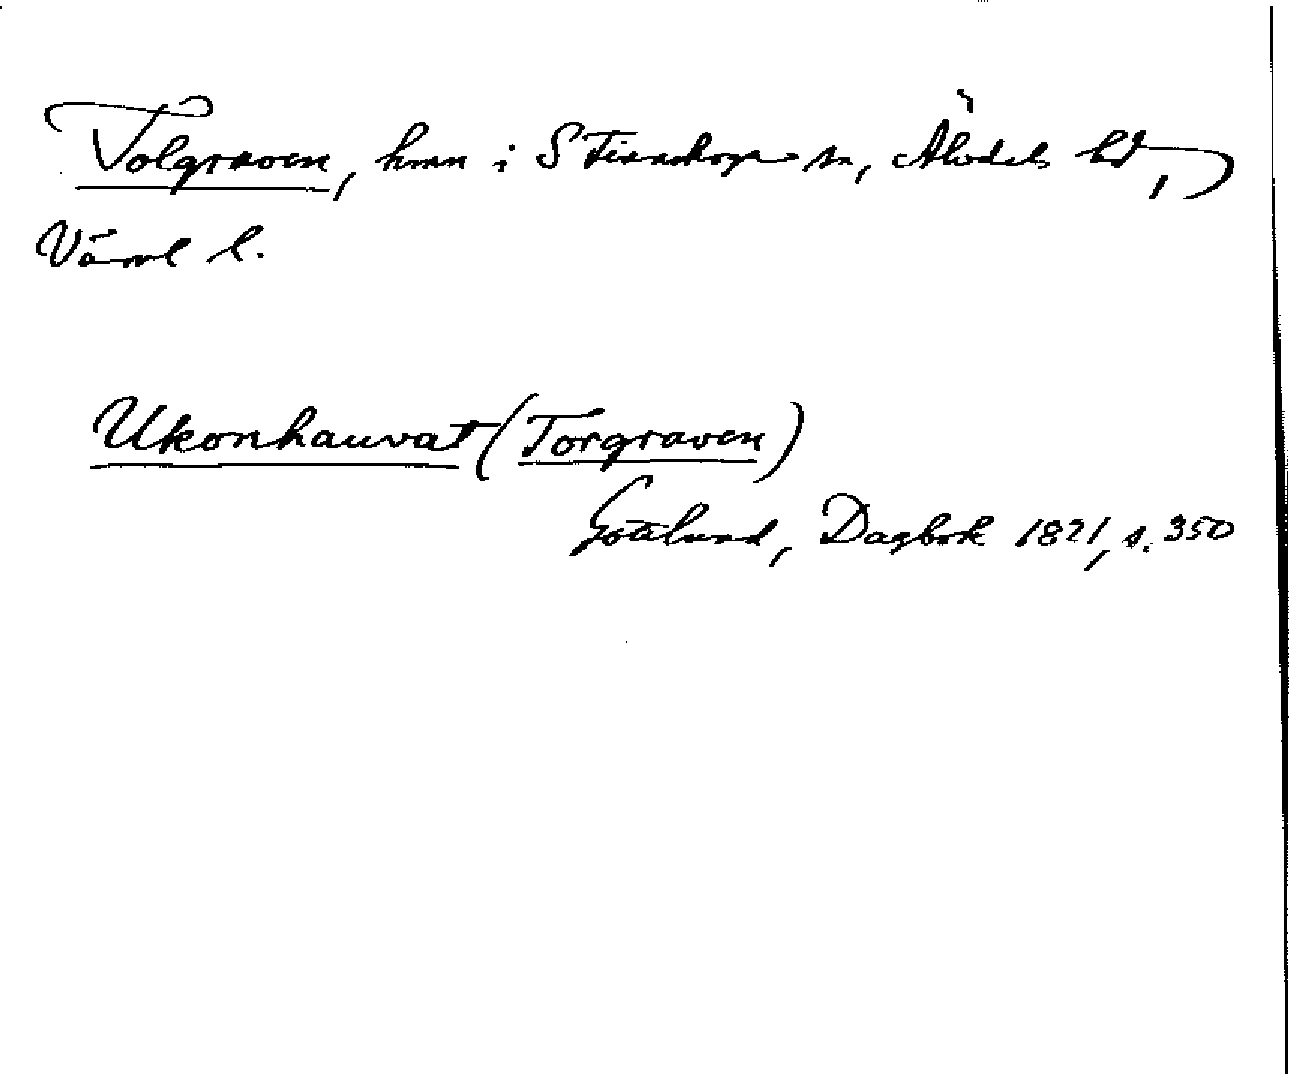 Tolgraven, hmn i S Finnskoga sn, Älvdals hd,
Värml l.
Ukonhauvat (Torgraven)
Gottlund, Dagbok 1821, s. 350